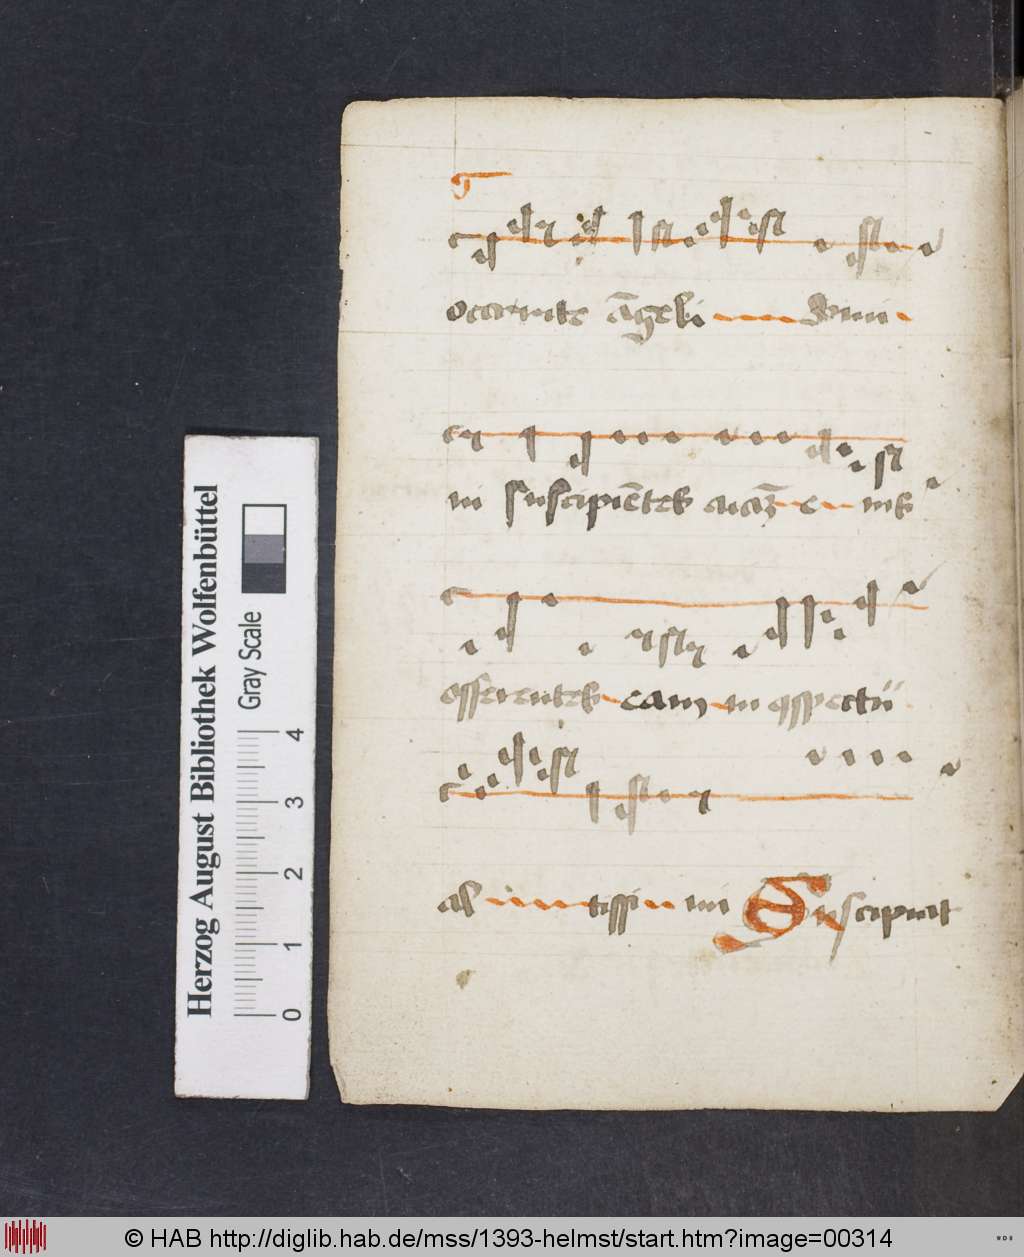 occurrite āgeli domi
ni suscipiētes aiāȝ e ius
offerentes eam in ɔspectū
al tissi mi Suscipiat
Herzog August Bibliothek Wolfenbüttel
Gray Scale
0 1 2 3 4
© HAB http://diglib.hab.de/mss/1393-helmst/start.htm?image=00314